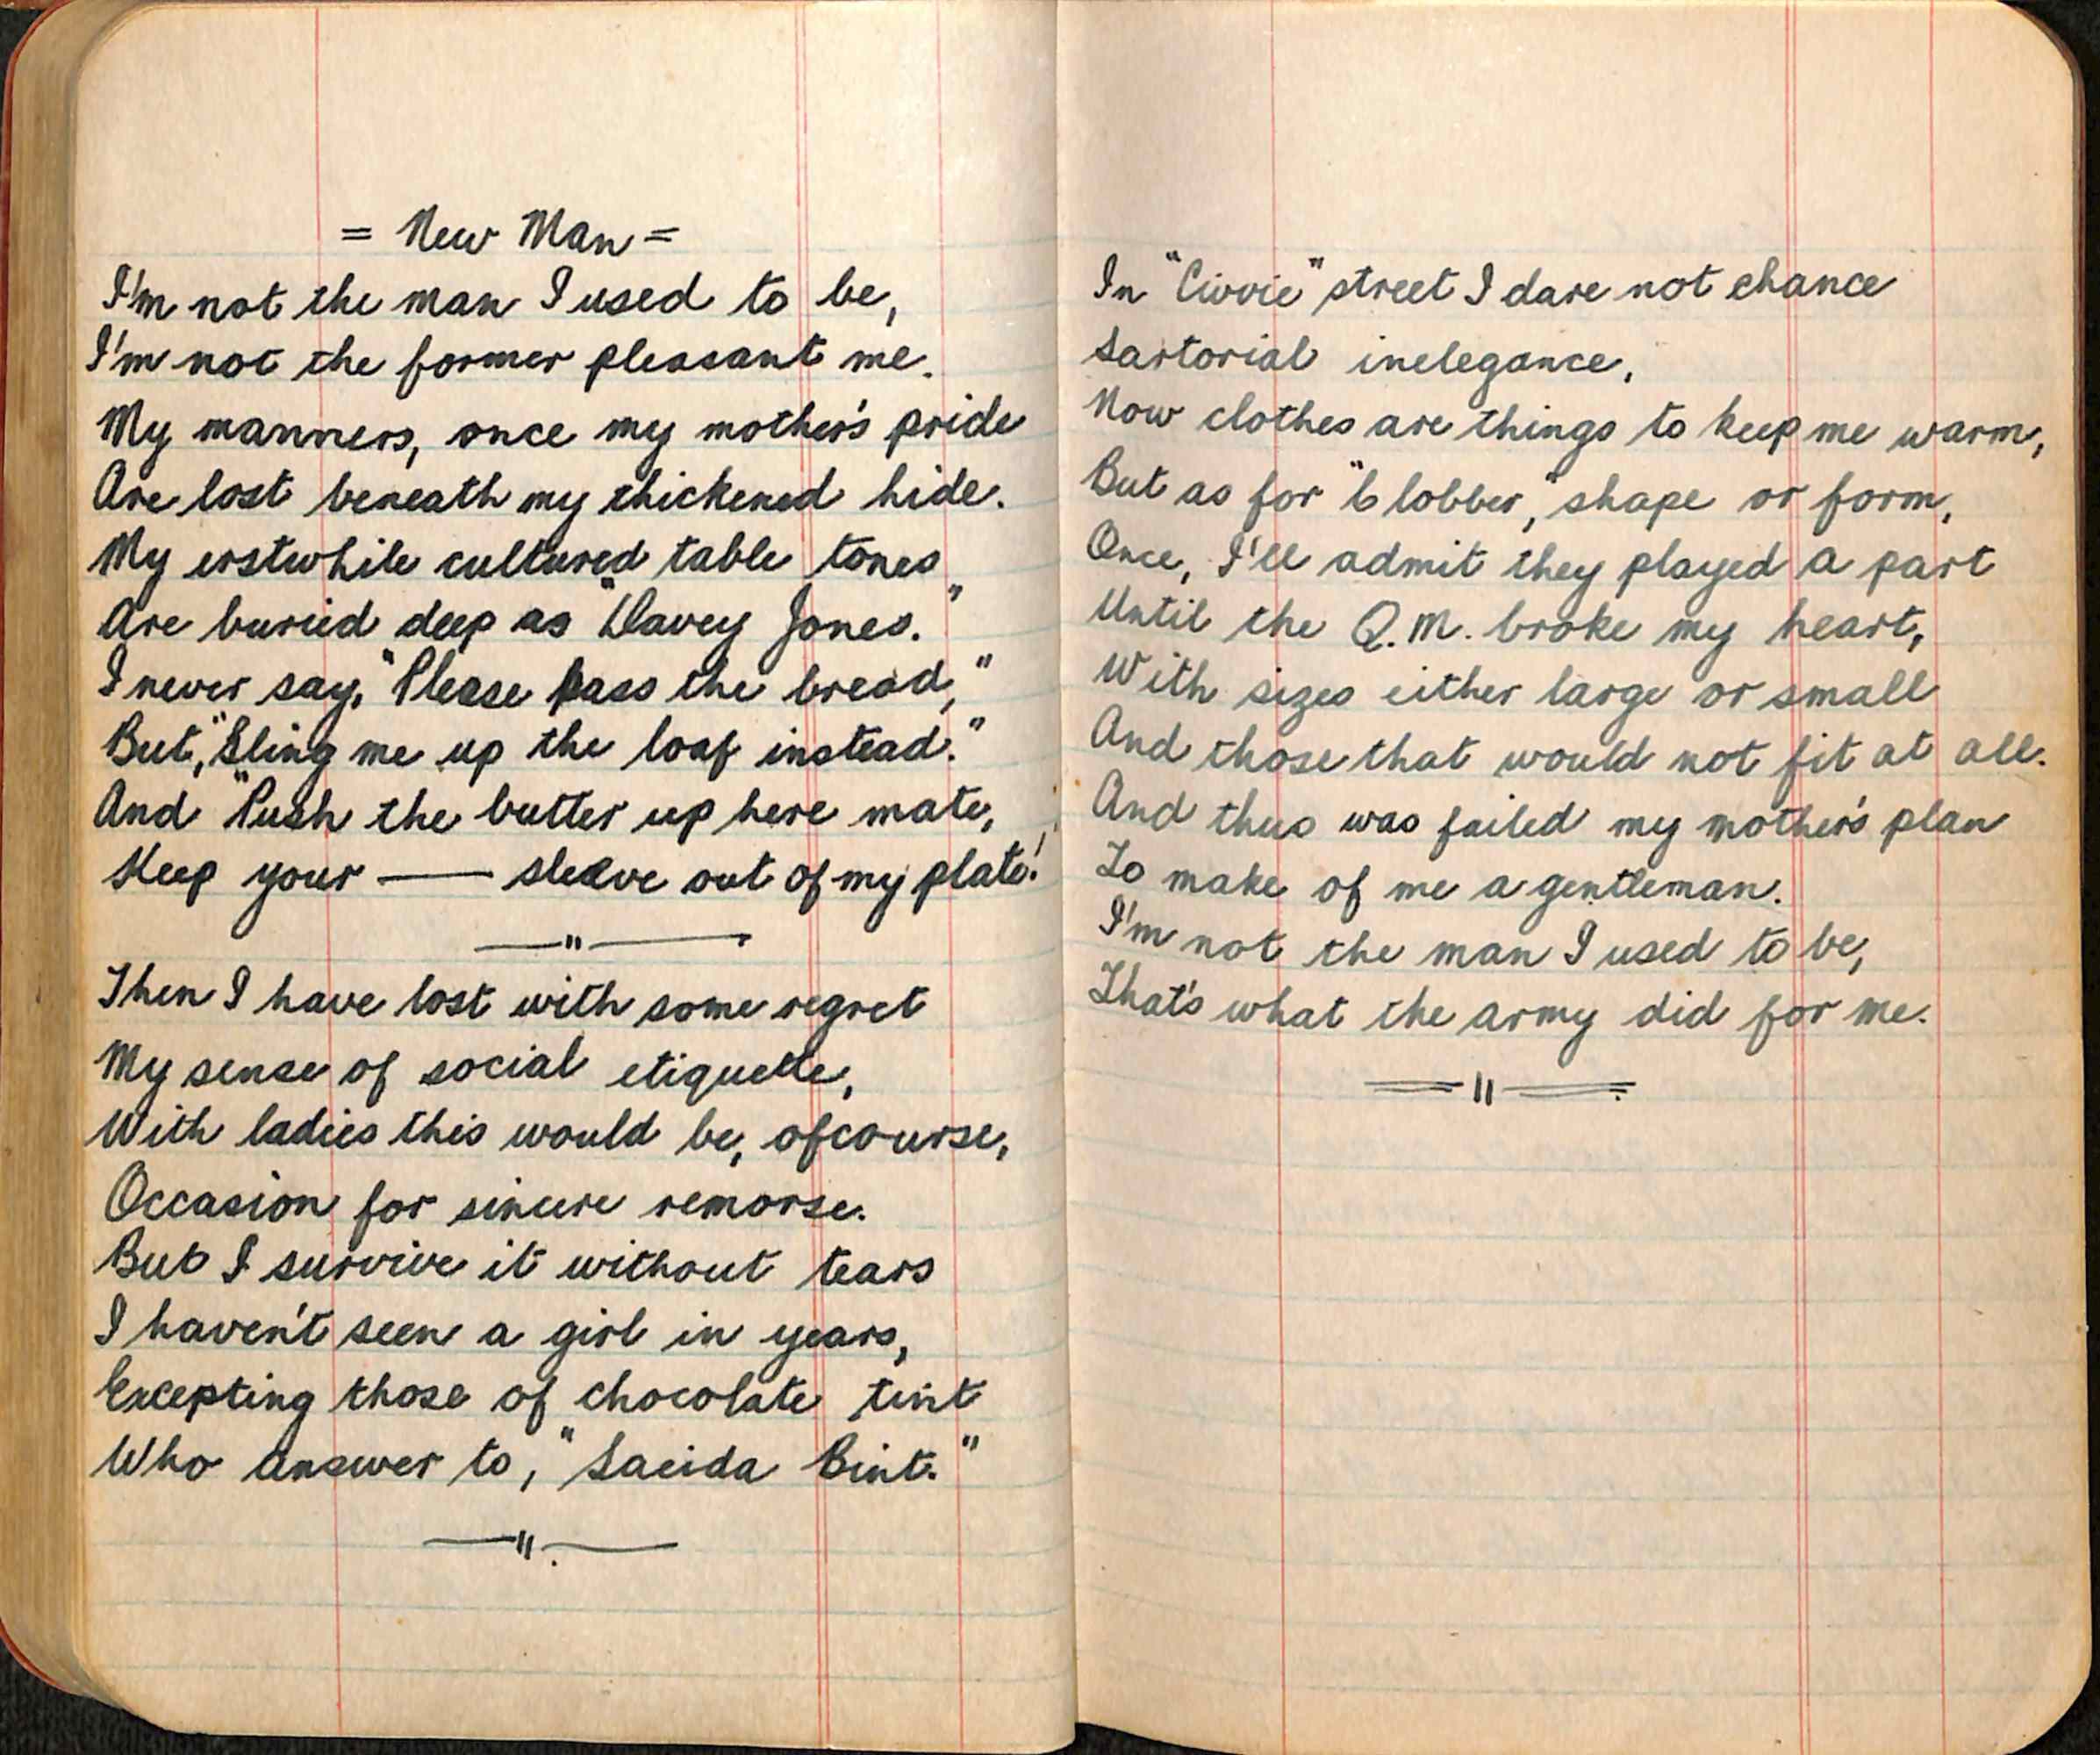 = New Man =
I'm not the man I used to be,
I'm not the former pleasant me.
My manners, once my mother's pride
Are lost beneath my thickened hide.
My erstwhile cultured table tones
Are buried deep as "Davey Jones."
I never say, "Please pass the bread,"
But, "Sling me up the loaf instead."
And "Push the butter up here mate,
Keep your —— sleeve out of my plate!"
—"—
Then I have lost with some regret
My sense of social etiquette,
With ladies this would be, ofcourse,
Occasion for sincere remorse.
But I survive it without tears
I haven't seen a girl in years,
Excepting those of chocolate tint
Who answer to, "Saeida Bint."
—"—
In "Civvie" street I dare not chance
Sartorial inelegance,
Now clothes are things to keep me warm,
But as for "Clobber," shape or form,
Once, I'll admit they played a part
Until the Q.M. broke my heart,
With sizes either large or small
And those that would not fit at all.
And thus was failed my mother's plan
To make of me a gentleman.
I'm not the man I used to be,
That's what the army did for me.
=="==